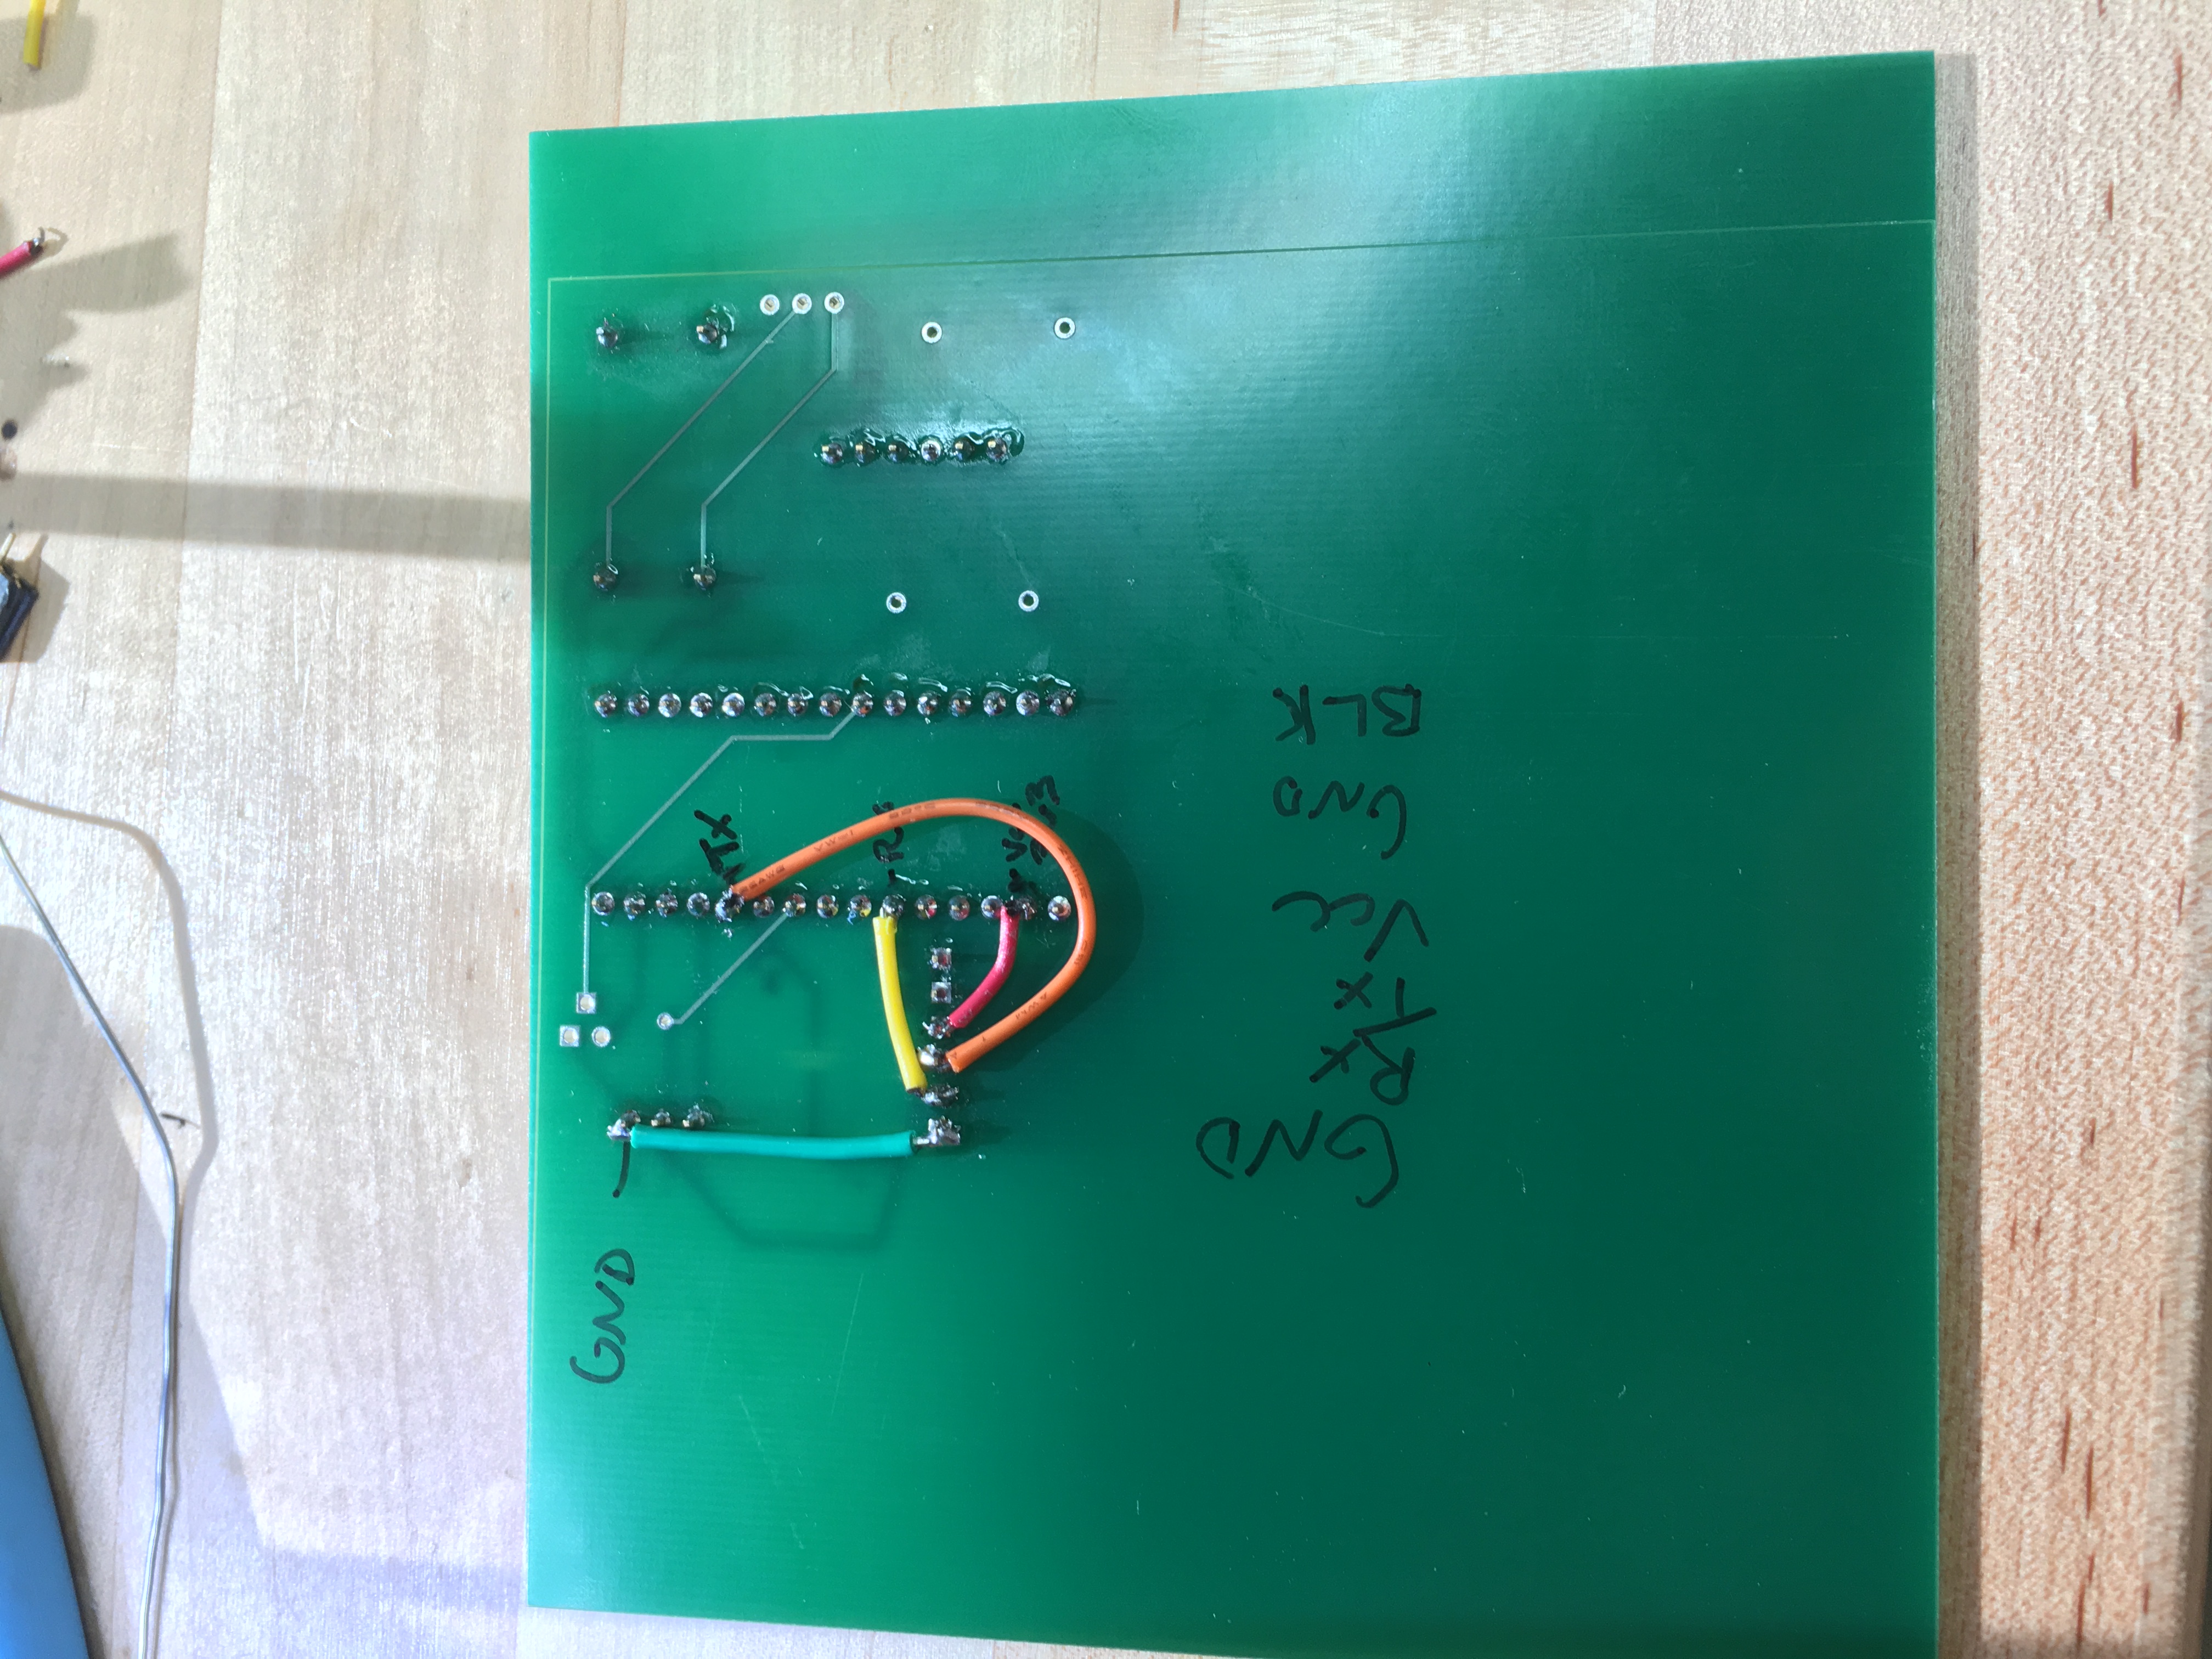 GND
Tx
Vcc
3v3
GND
Rx
Tx
Vcc
GND
BLK